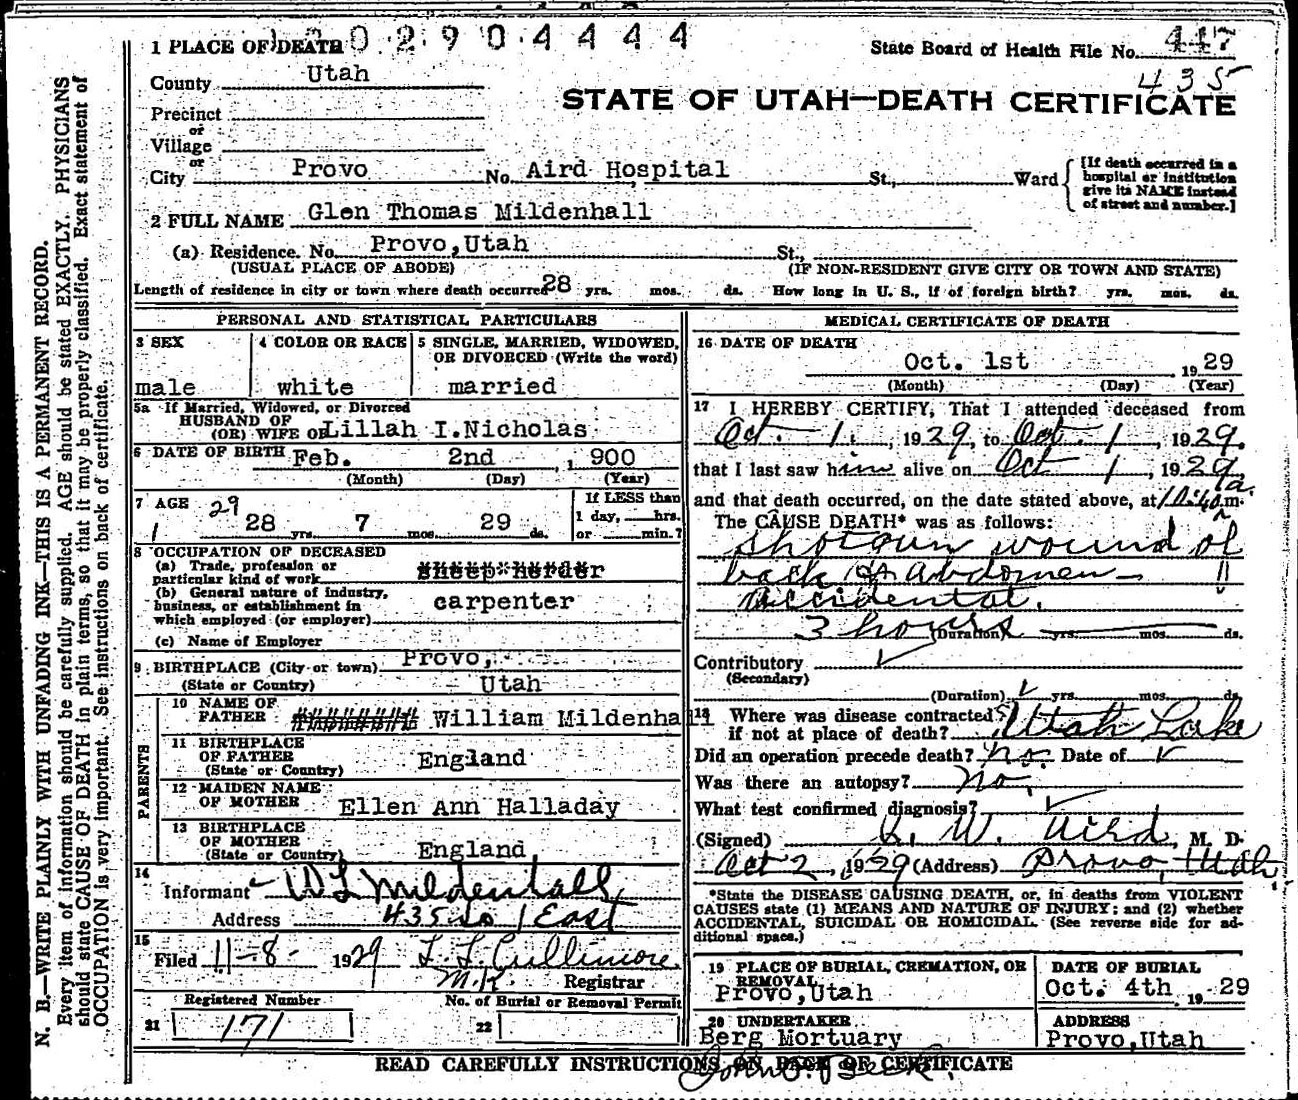 N. B.—WRITE PLAINLY WITH UNFADING INK—THIS IS A PERMANENT RECORD.
Every item of information should be carefully supplied. AGE should be stated EXACTLY. PHYSICIANS
should state CAUSE OF DEATH in plain terms, so that it may be properly classified. Exact statement of
OCCUPATION is very important. See instructions on back of certificate.
1 PLACE OF DEATH
0 2 9 0 4 4 4 4
State Board of Health File No. 447
435
County Utah
STATE OF UTAH—DEATH CERTIFICATE
Precinct
or
Village
or
City Provo No. Aird Hospital St., Ward
[If death occurred in a
hospital or institution
give its NAME instead
of street and number.]
2 FULL NAME Glen Thomas Mildenhall
(a) Residence. No. Provo, Utah St.,
(USUAL PLACE OF ABODE) (IF NON-RESIDENT GIVE CITY OR TOWN AND STATE)
Length of residence in city or town where death occurred 28 yrs. mos. ds. How long in U. S., if of foreign birth? yrs. mos. ds.
PERSONAL AND STATISTICAL PARTICULARS
3 SEX
male
4 COLOR OR RACE
white
5 SINGLE, MARRIED, WIDOWED,
OR DIVORCED (Write the word)
married
5a If Married, Widowed, or Divorced
HUSBAND OF
(OR) WIFE OF Lillah I.Nicholas
6 DATE OF BIRTH Feb. 2nd , 1900
(Month) (Day) (Year)
7 AGE 29
28 yrs. 7 mos. 29 ds.
If LESS than
1 day, hrs.
or min.?
8 OCCUPATION OF DECEASED
(a) Trade, profession or
particular kind of work sheep herder
(b) General nature of industry,
business, or establishment in
which employed (or employer) carpenter
(c) Name of Employer
9 BIRTHPLACE (City or town) Provo,
(State or Country) Utah
PARENTS
10 NAME OF
FATHER William Mildenhall
11 BIRTHPLACE
OF FATHER
(State or Country) England
12 MAIDEN NAME
OF MOTHER Ellen Ann Halladay
13 BIRTHPLACE
OF MOTHER
(State or Country) England
14
Informant W L Mildenhall
Address 435 So 1 East
15
Filed 11-8- 1929 L. L. Cullimore
M. K. Registrar
Registered Number
21 171
No. of Burial or Removal Permit
22
MEDICAL CERTIFICATE OF DEATH
16 DATE OF DEATH
Oct. 1st 1929
(Month) (Day) (Year)
17 I HEREBY CERTIFY, That I attended deceased from
Oct. 1. , 1929, to Oct. 1 , 1929.
that I last saw him alive on Oct 1 , 1929,
and that death occurred, on the date stated above, at 10:40 a m.
The CAUSE DEATH* was as follows:
Shotgun wound of
back of Abdomen—
Accidental.
3 hours (Duration) yrs. mos. ds.
Contributory
(Secondary)
(Duration) yrs. mos. ds.
18 Where was disease contracted
if not at place of death? Utah Lake
Did an operation precede death? no. Date of
Was there an autopsy? no.
What test confirmed diagnosis?
(Signed) J. W. Aird, M. D.
Oct 2, 1929 (Address) Provo, Utah.
*State the DISEASE CAUSING DEATH, or, in deaths from VIOLENT
CAUSES state (1) MEANS AND NATURE OF INJURY; and (2) whether
ACCIDENTAL, SUICIDAL OR HOMICIDAL. (See reverse side for ad-
ditional space.)
19 PLACE OF BURIAL, CREMATION, OR
REMOVAL
Provo, Utah
DATE OF BURIAL
Oct. 4th , 1929
20 UNDERTAKER
Berg Mortuary
ADDRESS
Provo, Utah
READ CAREFULLY INSTRUCTIONS ON BACK OF CERTIFICATE